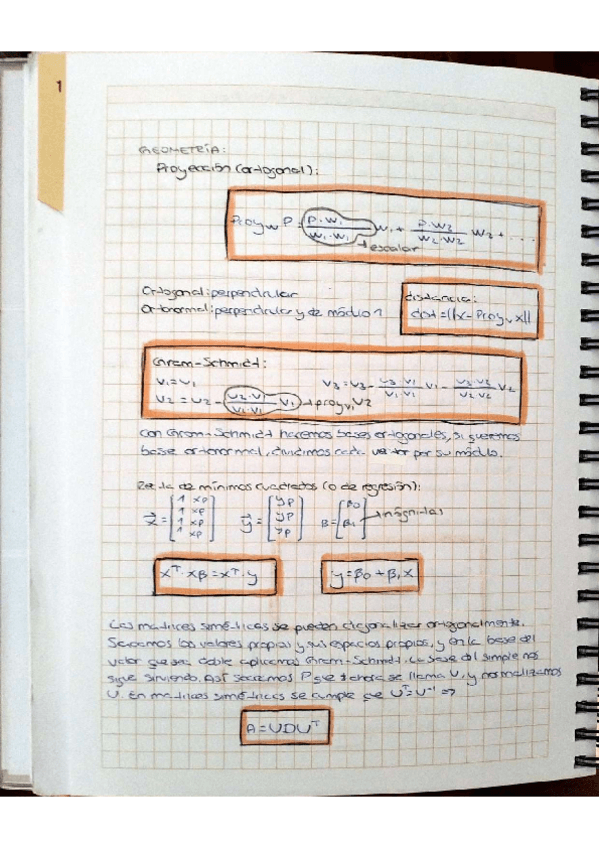 1
GEOMETRÍA:
Proyección (ortogonal):
Proy_W P = (P·W₁)/(W₁·W₁) W₁ + (P·W₂)/(W₂·W₂) W₂ + ...
escalar
Ortogonal: perpendicular
Ortonormal: perpendicular y de módulo 1
distancia:
dist = ||x - Proy_v x||
Gram-Schmidt:
V₁ = V₁
V₂ = U₂ - (U₂·V₁)/(V₁·V₁) V₁ → proy_V₁ U₂
V₃ = U₃ - (U₃·V₁)/(V₁·V₁) V₁ - (U₃·V₂)/(V₂·V₂) V₂
Con Gram-Schmidt hacemos bases ortogonales, si queremos
base ortonormal, dividimos cada vector por su módulo.
Recta de mínimos cuadrados (o de regresión):
x⃗ = [1 xp 1 xp 1 xp 1 xp] y⃗ = [yp yp yp] B = [β₀ β₁] → Incógnitas
Xᵀ·Xβ = Xᵀ·y
y = β₀ + β₁x
Las matrices simétricas se pueden diagonalizar ortogonalmente.
Sacamos los valores propios y sus espacios propios, y en la base del
valor que sea doble aplicamos Gram-Schmidt. La base del simple nos
sigue sirviendo. Así sacamos P que ahora se llama U, y normalizamos
U. En matrices simétricas se cumple que Uᵀ = U⁻¹ ⇒
A = UDUᵀ